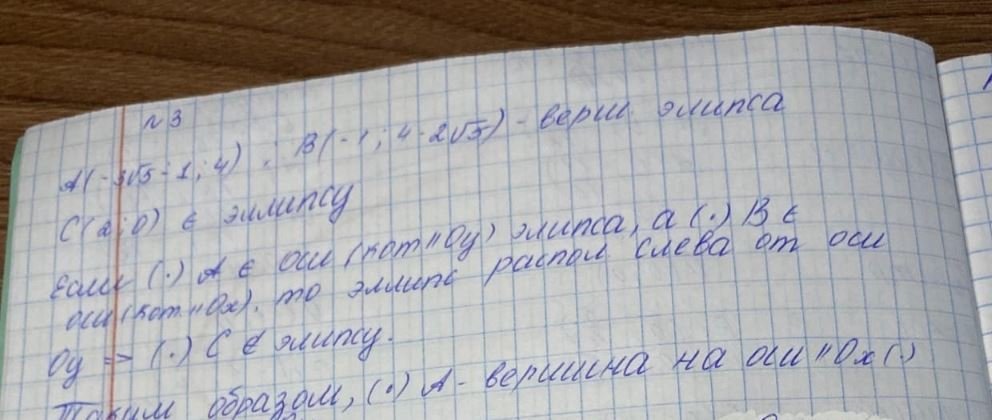 №3
A(-3√5-1; 4) ; B(-1; 4-2√5) - верш. элипса
C(2; 0) ∈ эллипсу
Если (·) A ∈ оси (кот || Oy) элипса, а (·) B ∈
оси (кот. || Ox), то эллипс распол слева от оси
Oy ⇒ (·) C ∉ элипсу.
Таким образом, (·) A - вершина на оси || Ox (·)